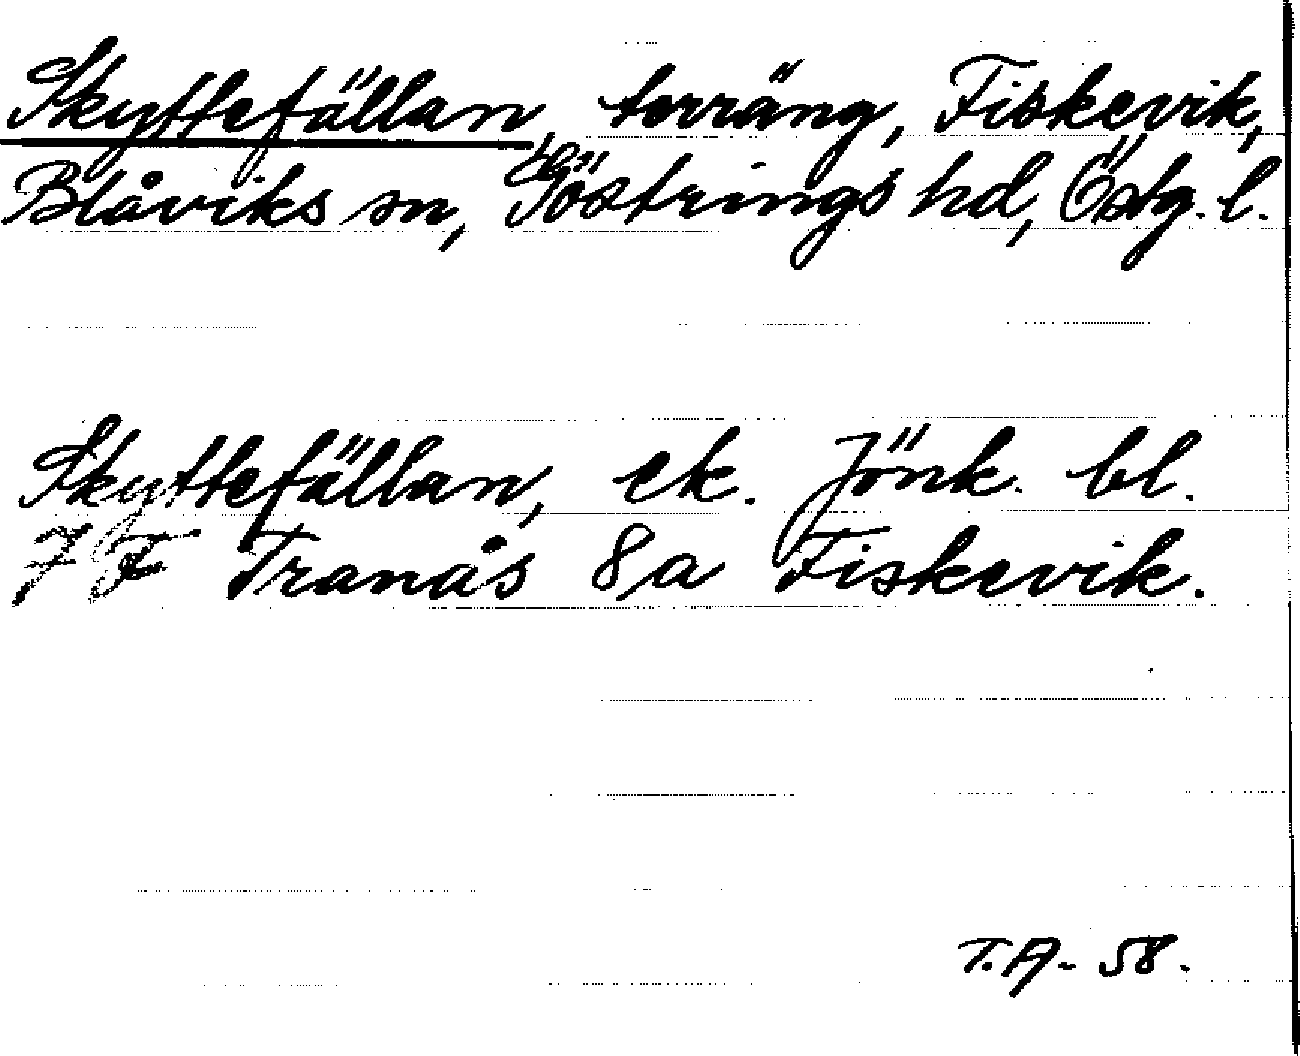 Skyttefällan, terräng, Fiskevik,
Blåviks sn, Göstrings hd, Östg. l.
Skyttefällan, ek. Jönk. bl.
7 F Tranås 8a Fiskevik.
T.A. 58.